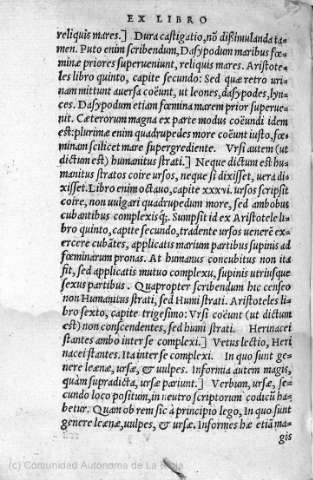 EX LIBRO
reliquis mares.] Dura castigatio, nõ dißimulanda ta-
men. Puto enim scribendum, Dasypodum maribus fœ-
minæ priores superueniunt, reliquis mares. Aristote-
les libro quinto, capite secundo: Sed quæ retro uri-
nam mittunt auersa coëunt, ut leones, dasypodes, lyn-
ces. Dasypodum etiam fœmina marem prior superue-
nit. Cæterorum magna ex parte modus coëundi idem
est: plurimæ enim quadrupedes more coëunt iusto, fœ-
minam scilicet mare supergrediente. Vrsi autem (ut
dictum est) humanitus strati.] Neque dictum est hu-
manitus stratos coire ursos, neque si dixisset, uera di-
xisset. Libro enim octauo, capite xxxvi. ursos scripsit
coire, non uulgari quadrupedum more, sed ambobus
cubantibus complexisq;. Sumpsit id ex Aristotele li-
bro quinto, capite secundo, tradente ursos uenerẽ ex-
ercere cubãtes, applicatis marium partibus supinis ad
fœminarum pronas. At humanus concubitus non ita
fit, sed applicatis mutuo complexu, supinis utriusque
sexus partibus. Quapropter scribendum hic censeo
non Humanius strati, sed Humi strati. Aristoteles li-
bro sexto, capite trigesimo: Vrsi coëunt (ut dictum
est) non conscendentes, sed humi strati. Herinacei
stantes ambo inter se complexi.] Vetus lectio, Heri
nacei stantes. Ita inter se complexi. In quo sunt ge-
nere leænæ, ursæ, & uulpes. Informia autem magis,
quàm supradicta, ursæ pariunt.] Verbum, ursæ, se-
cundo loco positum, in neutro scriptorum codicũ ha-
betur. Quam ob rem sic à principio lego, In quo sunt
genere leænæ, uulpes, & ursæ. Informes hæ etiã ma-
gis
(c) Comunidad Autónoma de La Rioja